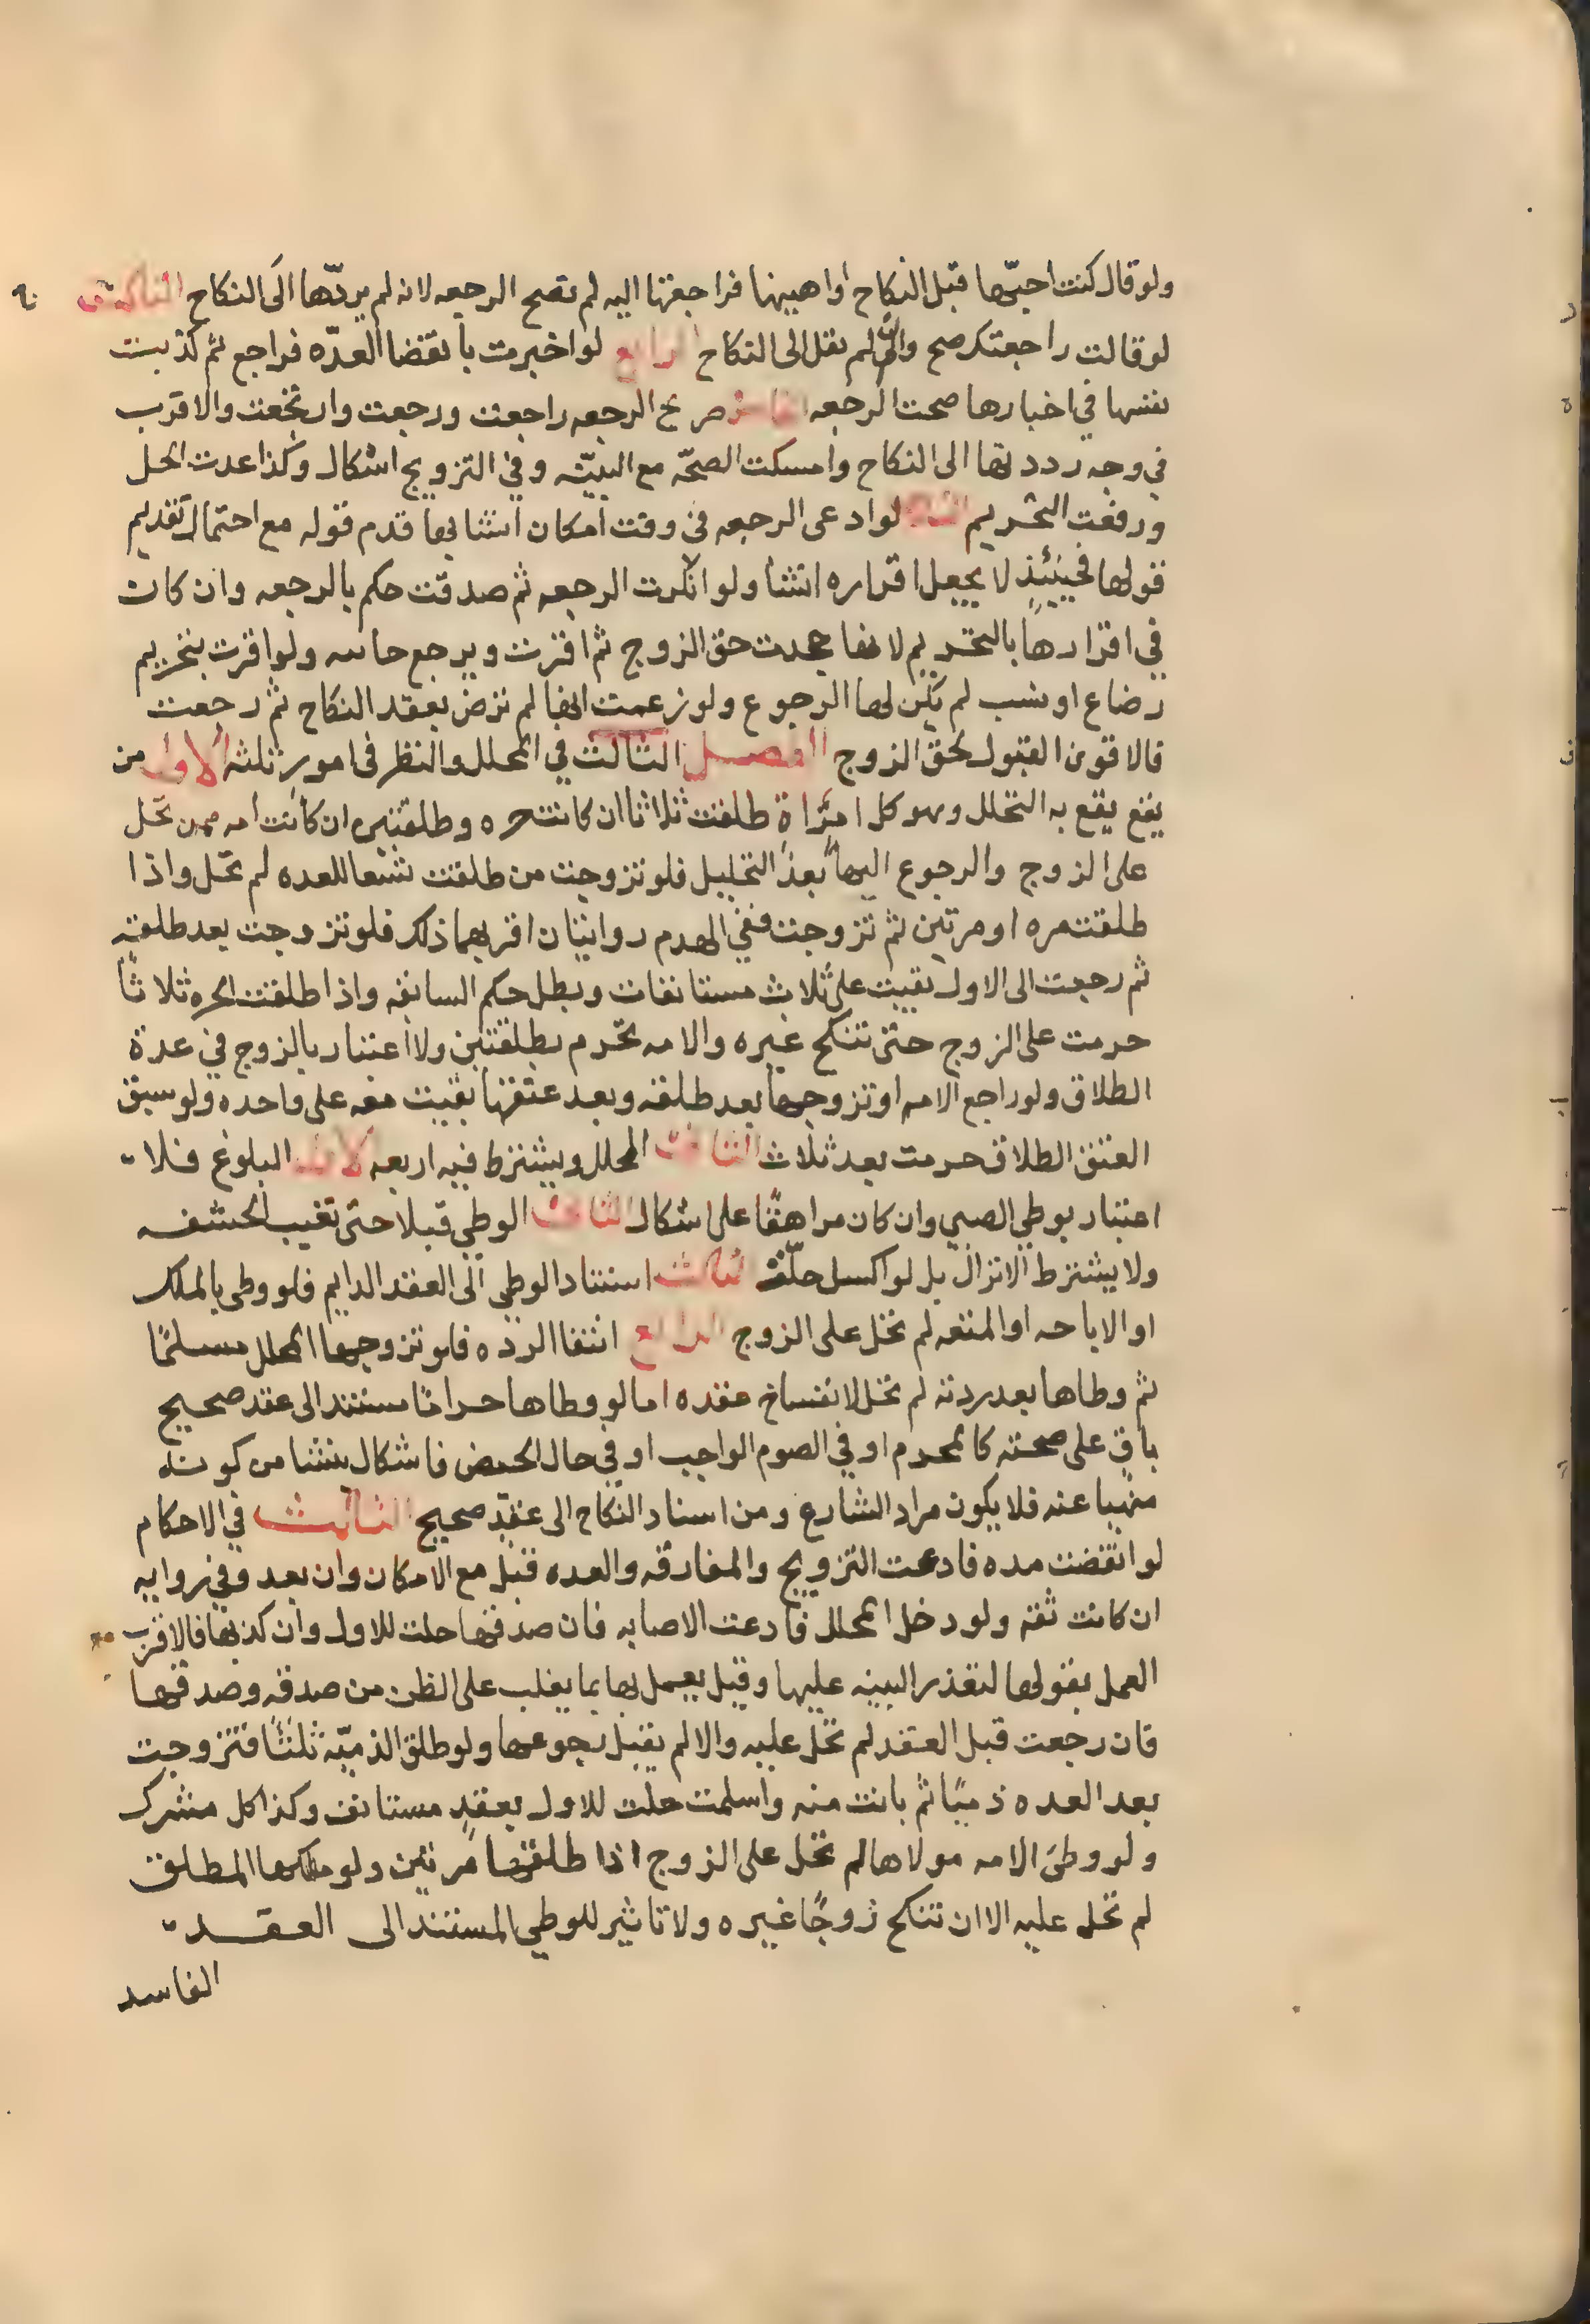 ولو قال كنت احبّها قبل النكاح او اهينها فراجعتها اليه لم تصح الرجعه لانه لم يردّها الى النكاح
لو قالت راجعتك صح وان لم يقل الى النكاح الرابع لو اخبرت بانقضا العدّه فراجع ثم كذبت
نفسها في اخبارها صحت الرجعه الخامس صريح الرجعه راجعت ورجعت وارتجعت والاقرب
في وجه رددتها الى النكاح وامسكت الصحّه مع النيّه وفي التزويج اشكال وكذا اعدت الحل
ورفعت التحريم لو ادعى الرجعه في وقت امكان انشايها قدم قوله مع احتمال تقديم
قولها فحينئذٍ لا يجعل اقراره انشا ولو انكرت الرجعه ثم صدقت حكم بالرجعه وان كان
في اقرارها بالتحريم لانها جحدت حق الزوج ثم اقرت ويرجع ولو اقرت بتحريم
رضاع او نسب لم يكن لها الرجوع ولو زعمت انها لم ترض بعقد النكاح ثم رجعت
فالاقوى القبول لحق الزوج الفصل الثالث في المحلل والنظر في امور ثلثه الاول من
يقع يقع به التحلل وهو كل امرٔاة طلقت ثلاثا ان كانت حره وطلقتين ان كانت امه ممن تحل
على الزوج والرجوع اليها بعد التحليل فلو تزوجت من طلقت تسعا للعده لم تحل واذا
طلقت مره او مرتين ثم تزوجت ففي الهدم روايتان اقربهما ذلك فلو تزوجت بعد طلقه
ثم رجعت الى الاول بقيت على ثلاث مستانفات وبطل حكم السابقه واذا طلقت الحره ثلاثاً
حرمت على الزوج حتى تنكح غيره والامه تحرم بطلقتين ولا اعتبار بالزوج في عدة
الطلاق ولو راجع الامه او تزوجها بعد طلقه وبعد عتقها بقيت معه على واحده ولو سبق
العتق الطلاق حرمت بعد ثلاث الثاني المحلل ويشترط فيه اربعه الاول البلوغ فلا
اعتبار بوطي الصبي وان كان مراهقًا على اشكال الثاني الوطي قبلا حتى تغيب الحشفه
ولا يشترط الانزال بل لو اكسل حلّت الثالث استناد الوطي الى العقد الدايم فلو وطى بالملك
او الاباحه او المتعه لم تحل على الزوج الرابع انتفا الرده فلو تزوجها المحلل مسلمًا
ثم وطاها بعد ردته لم تحل لانفساخ عقده اما لو وطاها حراما مستند الى عقد صحيح
باق على صحته كالمحرم او في الصوم الواجب او في حال الحيض فاشكال ينشا من كونه
منهيا عنه فلا يكون مراد الشارع ومن اسناد النكاح الى عقدٍ صحيح الثالث في الاحكام
لو انقضت مده فادعت التزويج والمفارقه والعده قبل مع الامكان وان بعد وفي روايه
ان كانت ثقه ولو دخل المحلل فادعت الاصابه فان صدقها حلت للاول وان كذبها فالاقرب
العمل بقولها لتعذر البينه عليها وقيل يعمل بما يغلب على الظن من صدقه وصدقها
فان رجعت قبل العقد لم تحل عليه والا لم يقبل رجوعها ولو طلق الذميّه ثلثًا فتزوجت
بعد العده ذميًا ثم بانت منه واسلمت حلت للاول بعقدٍ مستانف وكذا كل مشرك
ولو وطى الامه مولاها لم تحل على الزوج اذا طلقها مرتين ولو ملكها المطلق
لم تحل عليه الا ان تنكح زوجًا غيره ولا تاثير للوطي المستند الى العقد
الفاسد